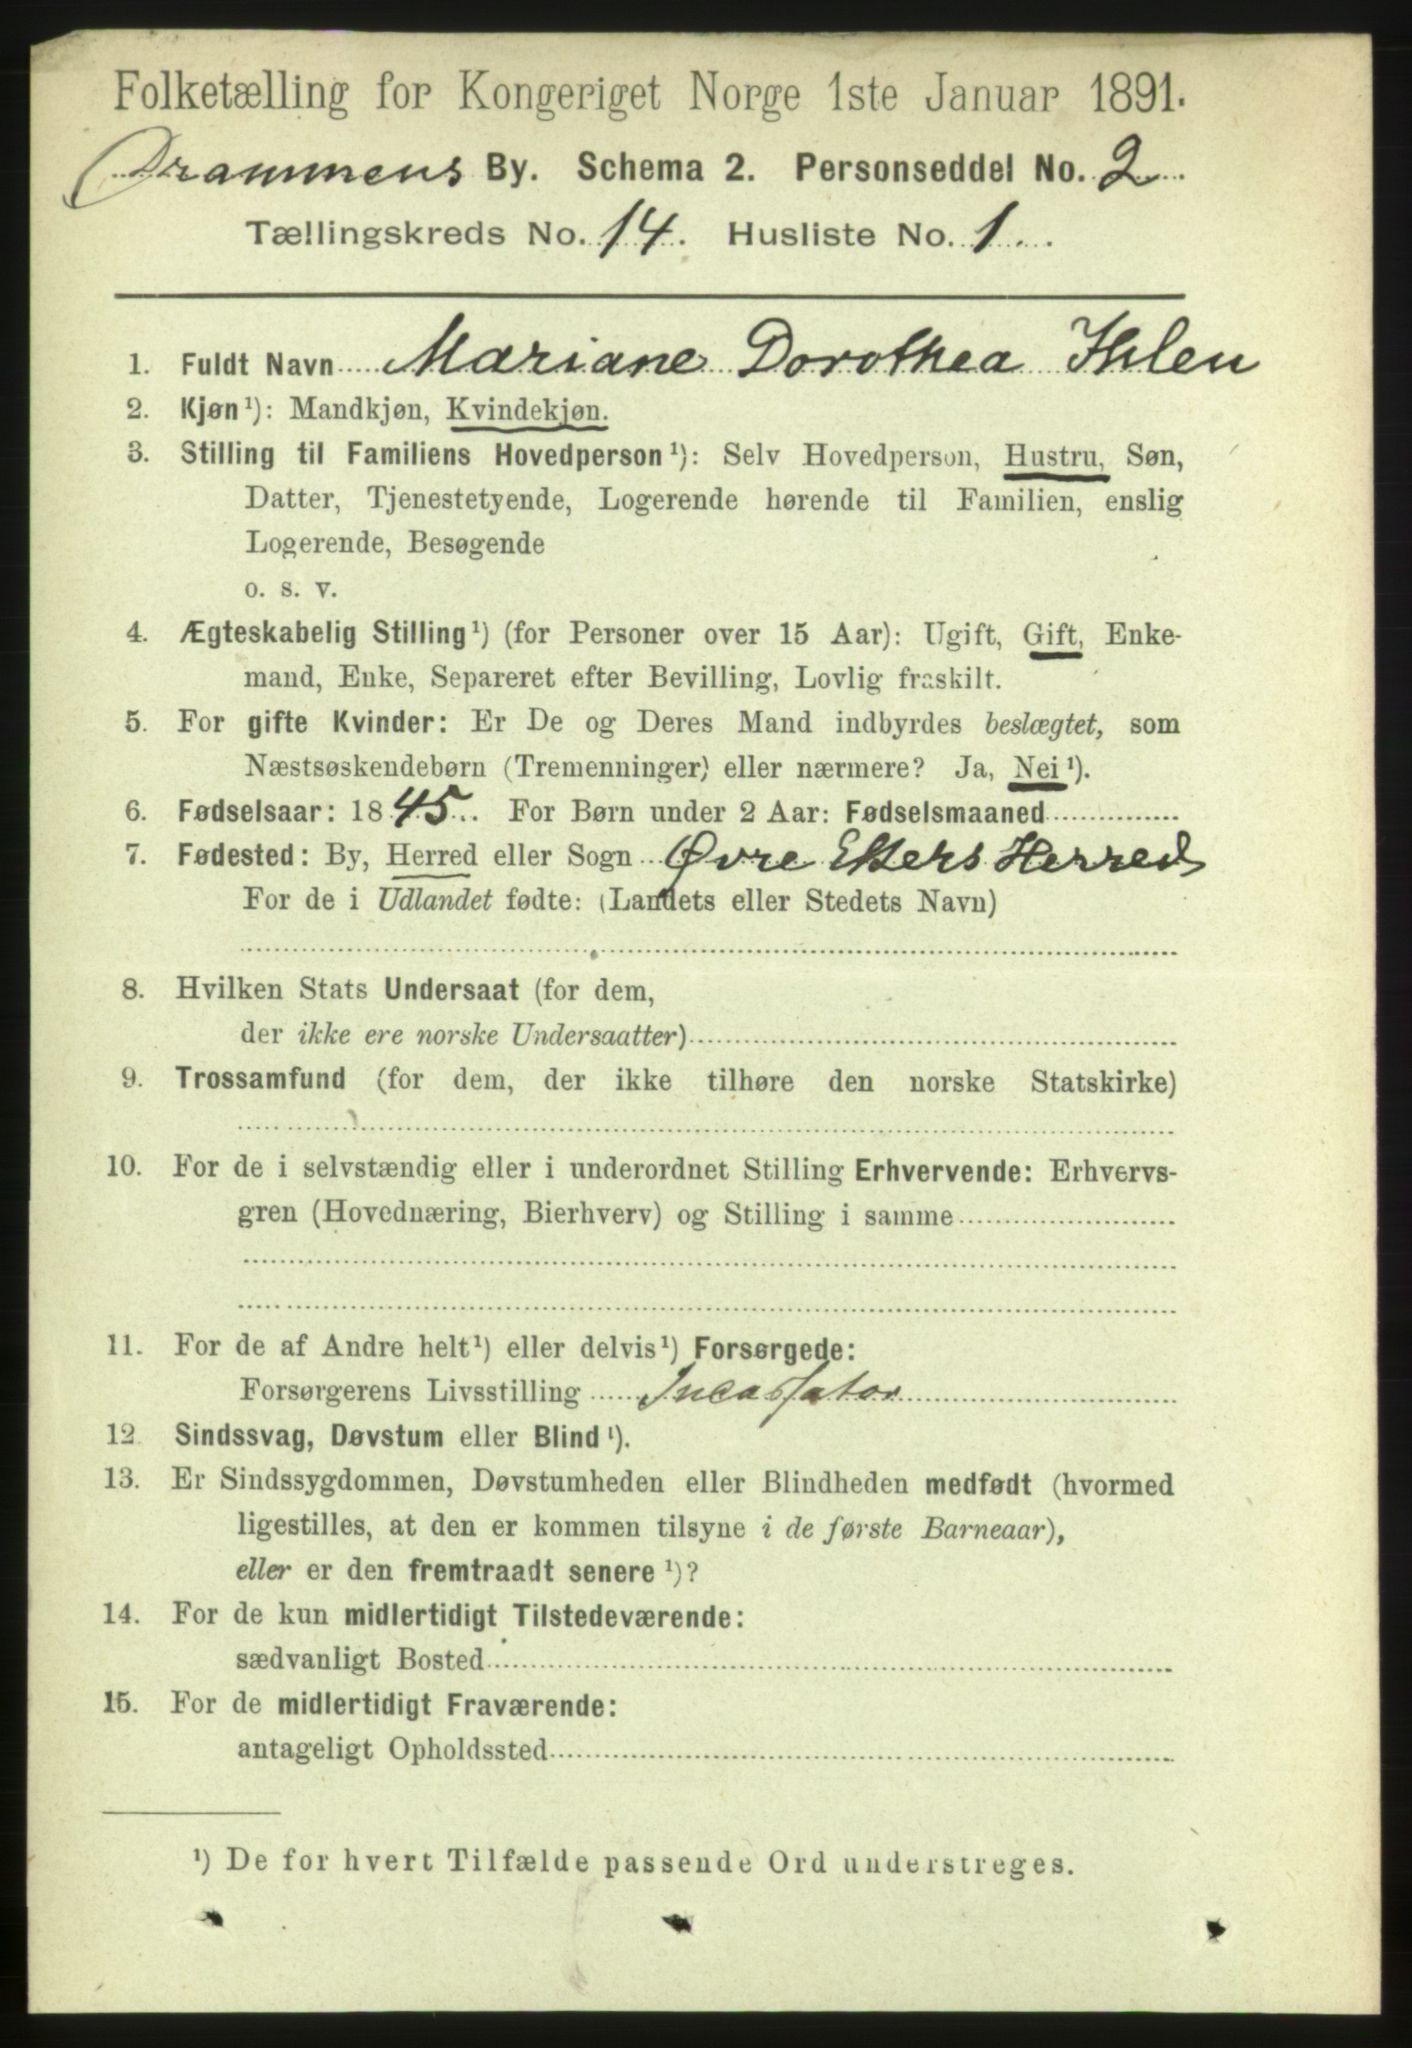 Folketælling for Kongeriget Norge 1ste Januar 1891.
Drammens By. Schema 2. Personseddel No. 2
Tællingskreds No. 14. Husliste No. 1.
1. Fuldt Navn Mariane Dorothea Ihlen
2. Kjøn¹): Mandkjøn, Kvindekjøn.
3. Stilling til Familiens Hovedperson¹): Selv Hovedperson, Hustru, Søn,
Datter, Tjenestetyende, Logerende hørende til Familien, enslig
Logerende, Besøgende
o. s. v.
4. Ægteskabelig Stilling¹) (for Personer over 15 Aar): Ugift, Gift, Enke-
mand, Enke, Separeret efter Bevilling, Lovlig fraskilt.
5. For gifte Kvinder: Er De og Deres Mand indbyrdes beslægtet, som
Næstsøskendebørn (Tremenninger) eller nærmere? Ja, Nei¹).
6. Fødselsaar: 1845. For Børn under 2 Aar: Fødselsmaaned
7. Fødested: By, Herred eller Sogn Øvre Ekers Herred
For de i Udlandet fødte: (Landets eller Stedets Navn)
8. Hvilken Stats Undersaat (for dem,
der ikke ere norske Undersaatter)
9. Trossamfund (for dem, der ikke tilhøre den norske Statskirke)
10. For de i selvstændig eller i underordnet Stilling Erhvervende: Erhvervs-
gren (Hovednæring, Bierhverv) og Stilling i samme
11. For de af Andre helt¹) eller delvis¹) Forsørgede:
Forsørgerens Livsstilling Incassator
12. Sindssvag, Døvstum eller Blind¹).
13. Er Sindssygdommen, Døvstumheden eller Blindheden medfødt (hvormed
ligestilles, at den er kommen tilsyne i de første Barneaar),
eller er den fremtraadt senere¹)?
14. For de kun midlertidigt Tilstedeværende:
sædvanligt Bosted
15. For de midlertidigt Fraværende:
antageligt Opholdssted
¹) De for hvert Tilfælde passende Ord understreges.